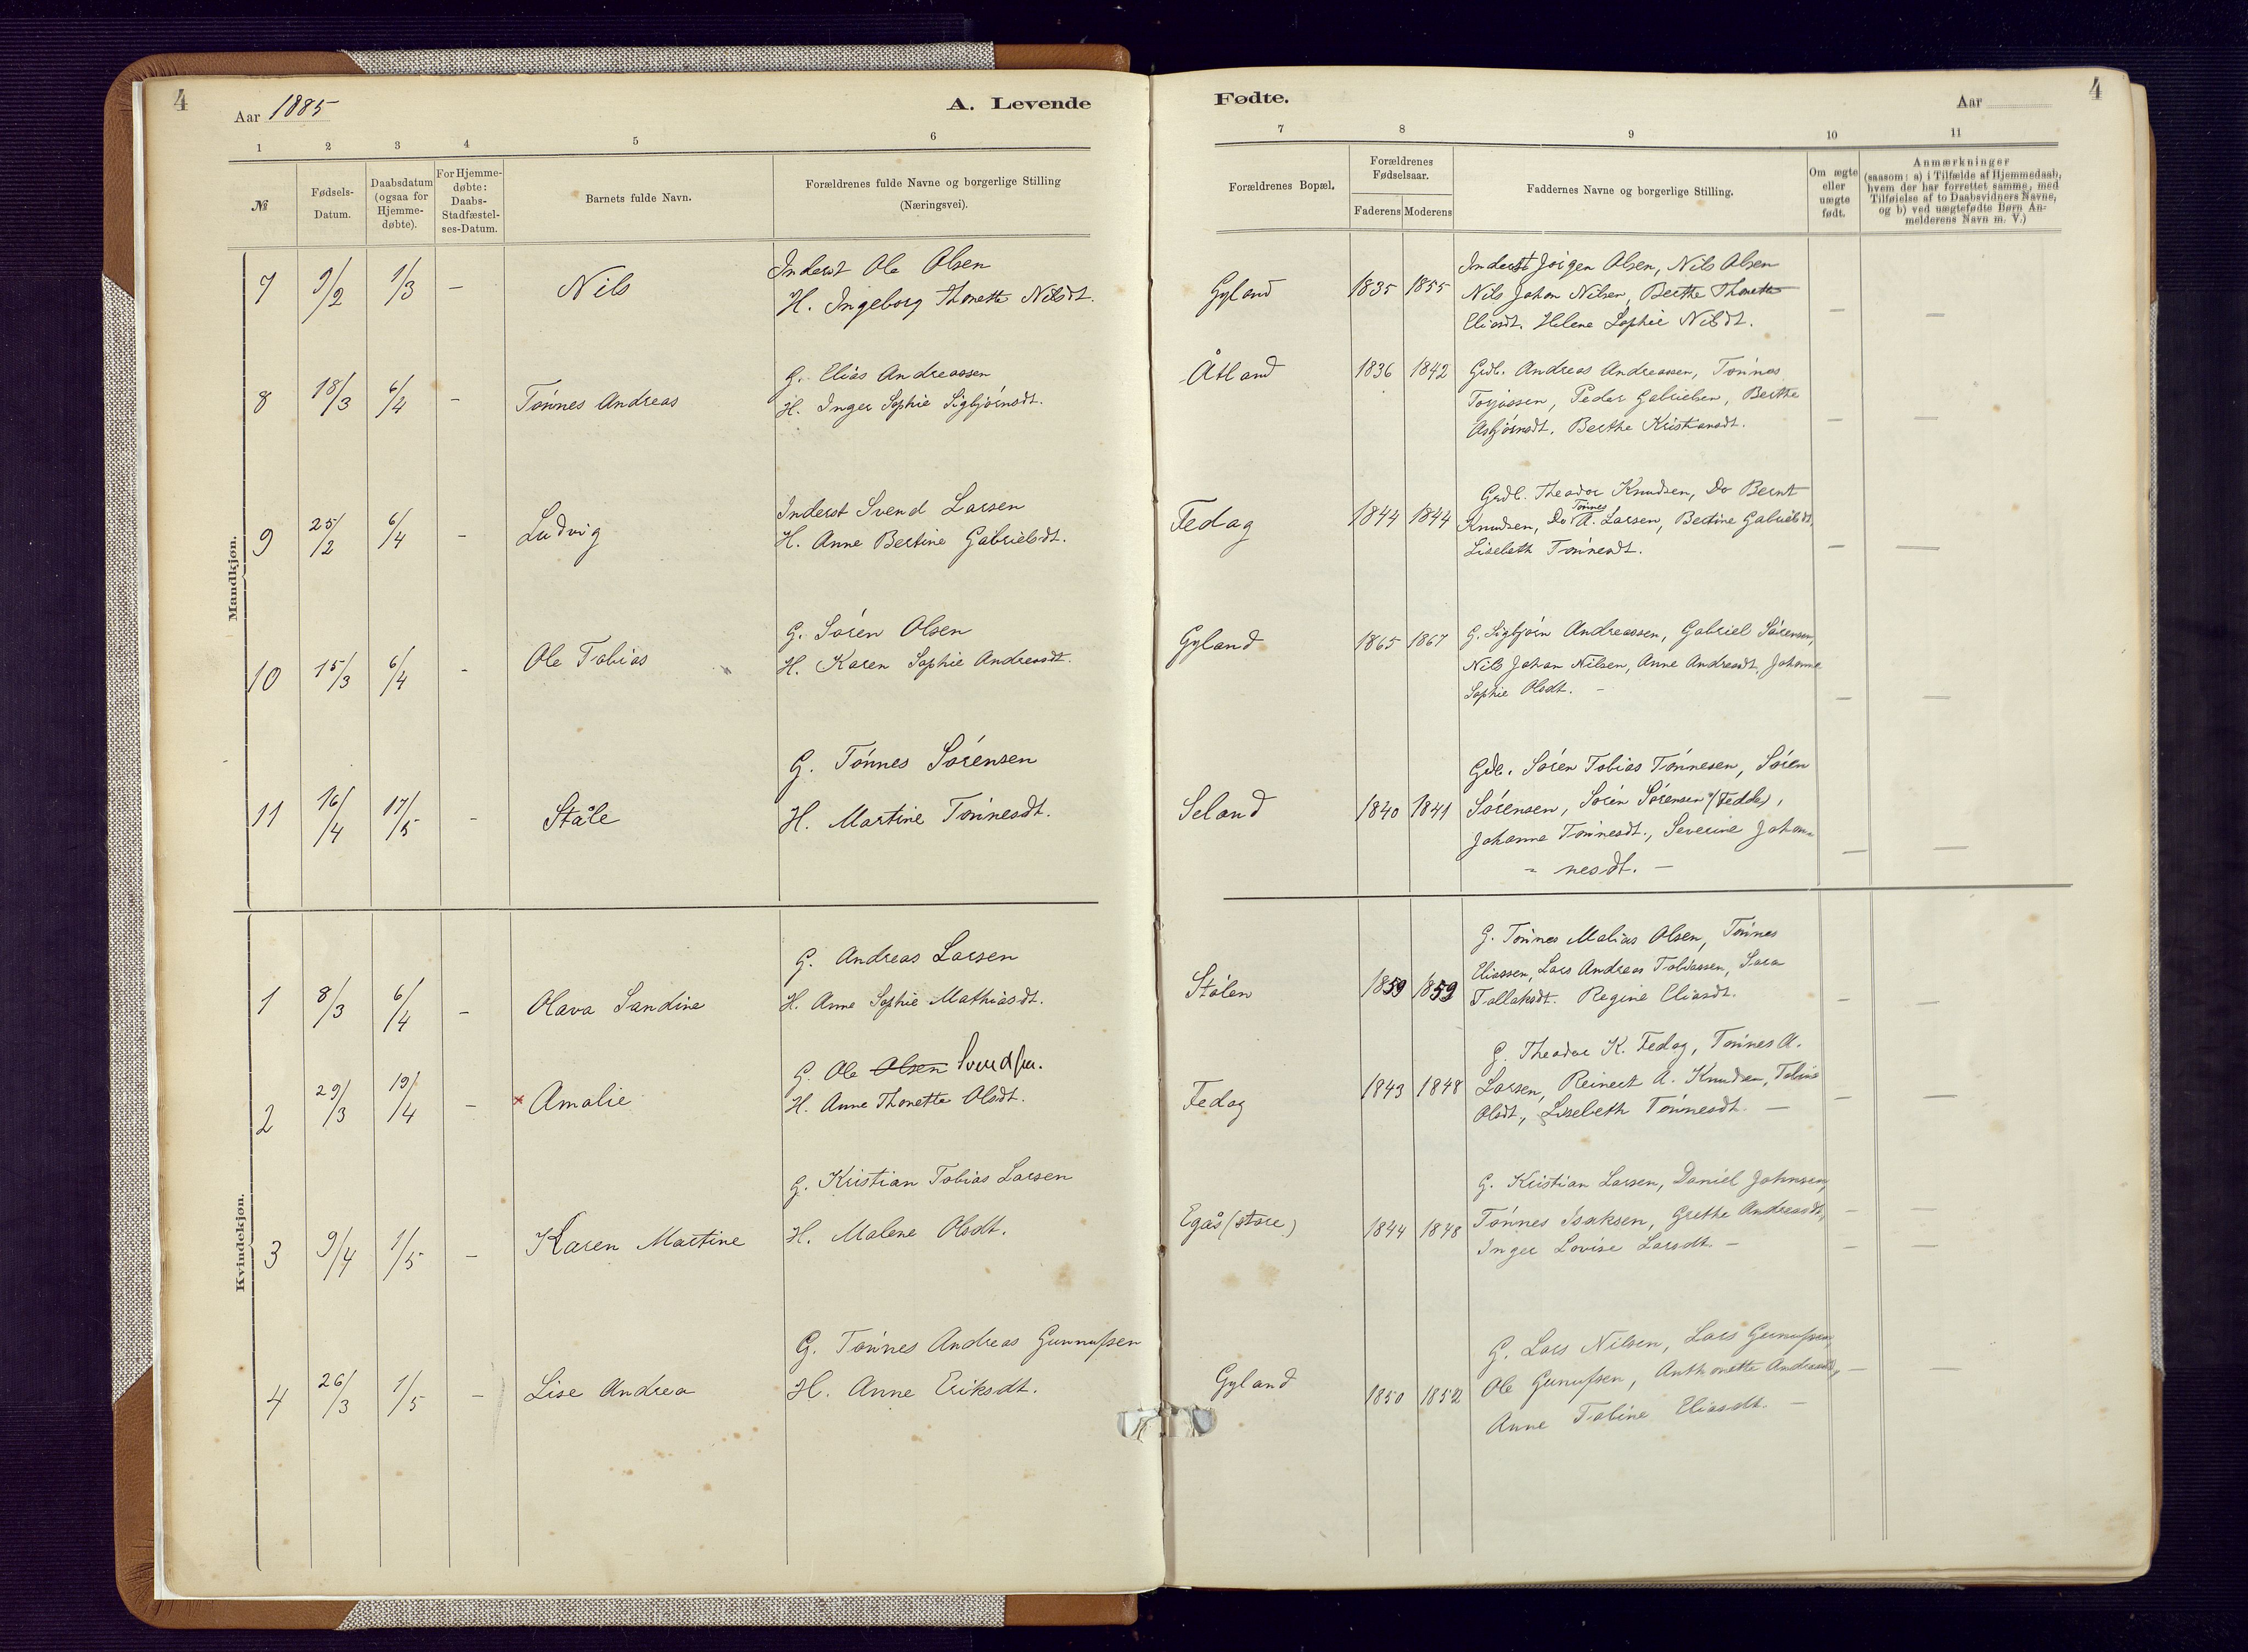 4
Aar 1885
A. Levende
1 2 3 4 5 6
№
Fødsels-
Datum.
Daabsdatum
(ogsaa for
Hjemme-
døbte).
For Hjemme-
døbte:
Daabs-
Stadfæstel-
ses-Datum.
Barnets fulde Navn.
Forældrenes fulde Navne og borgerlige Stilling
(Næringsvei).
Fødte.
Aar
4
7 8 9 10 11
Forældrenes Bopæl.
Forældrenes
Fødselsaar.
Faderens Moderens
Faddernes Navne og borgerlige Stilling.
Om ægte
eller
uægte
født.
Anmærkninger
(saasom: a) i Tilfælde af Hjemmedaab,
hvem der har forrettet samme, med
Tilføielse af to Daabsvidners Navne,
og b) ved uægtefødte Børn An-
melderens Navn m. V.)
Mandkjøn.
7 9/2 1/3 - Nils
Inderst Ole Olsen
H. Ingeborg Thonette Nilsdt.
Gyland 1835 1855
Inderst Jørgen Olsen, Nils Olsen
Nils Johan Nilsen, Berthe Thonette
Eliasdt. Helene Sophie Nilsdt.
— —
8 18/3 6/4 - Tønnes Andreas
G. Elias Andreassen
H. Inger Sophie Sigbjørnsdt.
Åtland 1836 1842
Grdb. Andreas Andreassen, Tønnes
Torjussen, Peder Gabrielsen, Berthe
Asbjørnsdt. Berthe Kristiansdt.
— —
9 25/2 6/4 - Ludvig
Inderst Svend Larsen
H. Anne Bertine Gabrielsdt.
Fedog 1844 1844
Grdb. Theodor Knudsen, Do Bernt
Knudsen, Do Tønnes A. Larsen, Bertine Gabrielsdt,
Lisebeth Tønnesdt.
— —
10 15/3 6/4 - Ole Tobias
G. Søren Olsen
H. Karen Sophie Andreasdt.
Gyland 1865 1867
G. Sigbjørn Andreassen, Gabriel Sørensen,
Nils Johan Nilsen, Anne Andreasdt, Johanne
Sophie Olsdt. -
— —
11 16/4 17/5 - Ståle
G. Tønnes Sørensen
H. Martine Tønnesdt.
Seland 1840 1841
Gdb. Søren Tobias Tønnesen, Søren
Sørensen, Søren Sørensen (Fedde),
Johanne Tønnesdt., Severine Johan-
- nesdt. -
— —
Kvindekjøn.
1 8/3 6/4 - Olava Sandine
G. Andreas Larsen
H. Anne Sophie Mathiasdt.
Stølen 1859 1859
G. Tønnes Malias Olsen, Tønnes
Eliassen, Lars Andreas Tobiassen, Sara
Tollaksdt. Regine Eliasdt.
— —
2 29/3 19/4 - × Amalie
G. Ole Olsen Svendsen.
H. Anne Thonette Olsdt.
Fedog 1843 1848
G. Theodor K. Fedog, Tønnes A.
Larsen, Reinert A. Knudsen, Tobine
Olsdt., Lisebeth Tønnesdt. -
— —
3 9/4 1/5 - Karen Martine
G. Kristian Tobias Larsen
H. Malene Olsdt.
Egås (store) 1844 1848
G. Kristian Larsen, Daniel Johnsen,
Tønnes Isaksen, Grethe Andreasdt,
Inger Lovise Larsdt. -
— —
— —
4 26/3 1/5 - Lise Andrea
G. Tønnes Andreas Gunnufsen
H. Anne Eriksdt.
Gyland 1850 1852
G. Lars Nilsen, Lars Gunufsen,
Ole Gunufsen, Anthonette Andreasdt,
Anne Tobine Eliasdt. -
— —